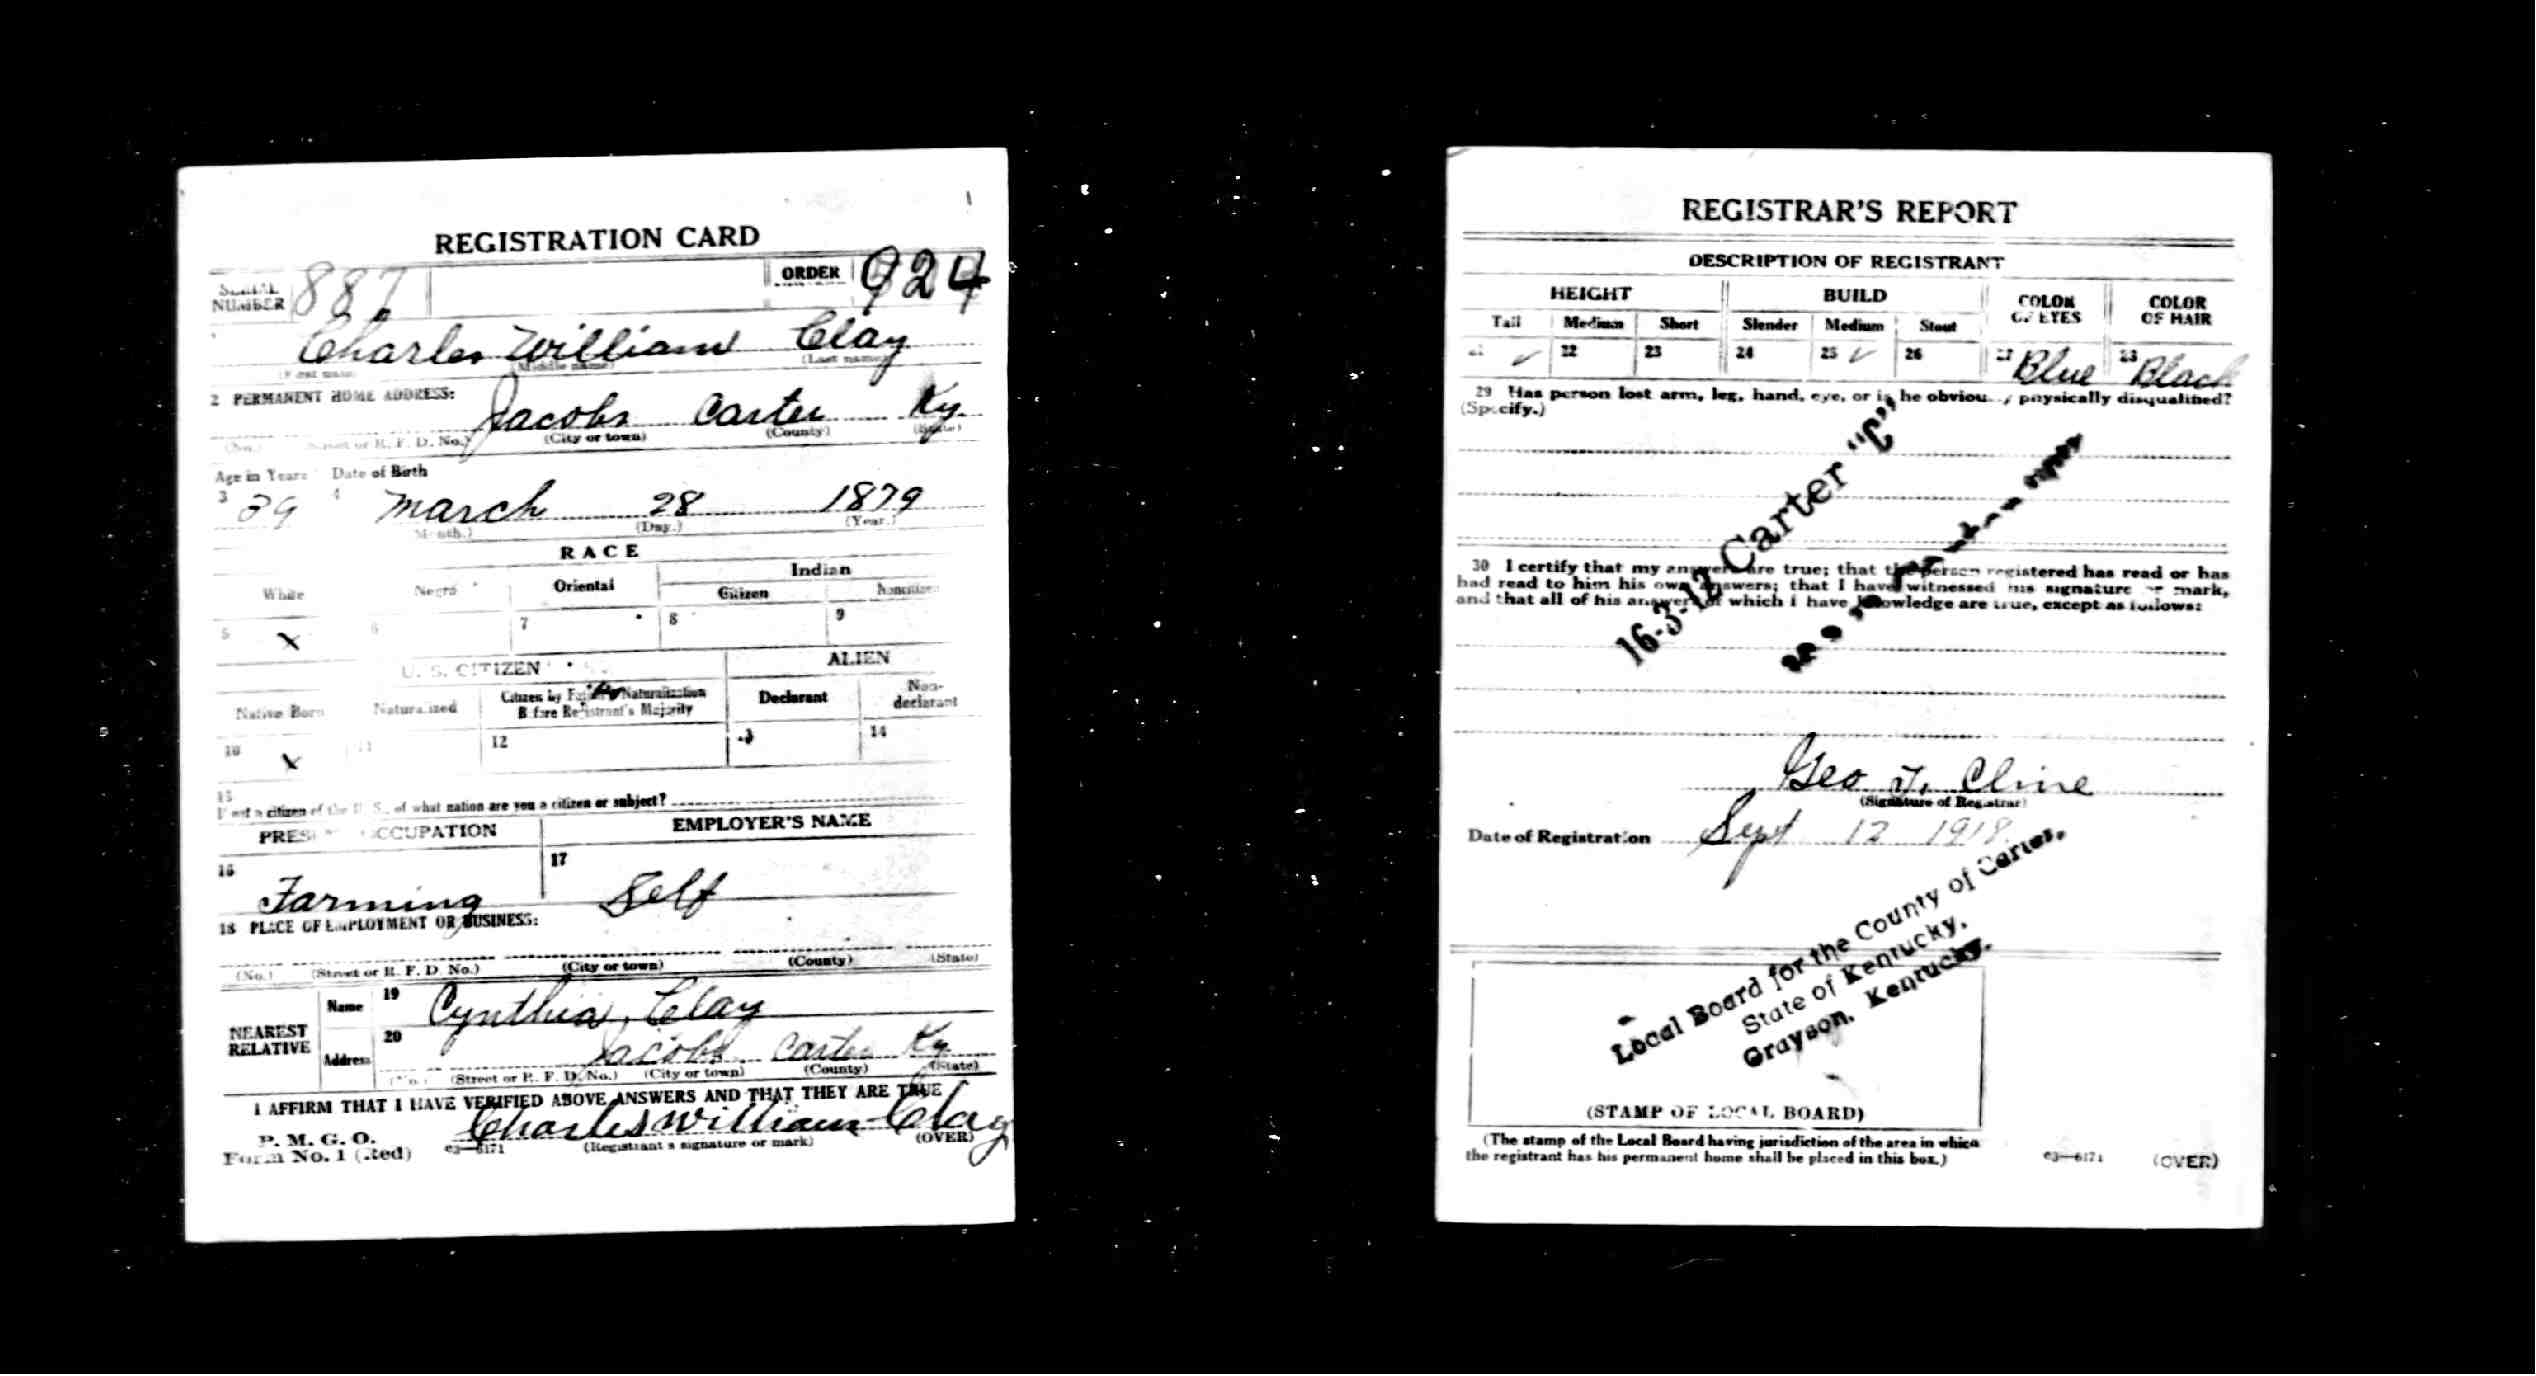 REGISTRATION CARD
SERIAL NUMBER 887 ORDER 924
Charles William Clay
(First name) (Middle name) (Last name)
2 PERMANENT HOME ADDRESS:
Jacobs Carter Ky
(No.) (Street or R. F. D. No.) (City or town) (County) (State)
Age in Years Date of Birth
3 39 4 March 28 1879
(Month.) (Day.) (Year.)
RACE
White Negro Oriental Indian
Citizen Noncitizen
5 X 6 7 8 9
U. S. CITIZEN ALIEN
Native Born Naturalized Citizen by Father's Naturalization Before Registrant's Majority Declarant Non-declarant
10 X 11 12 13 14
15
If not a citizen of the U. S., of what nation are you a citizen or subject?
PRESENT OCCUPATION EMPLOYER'S NAME
16 Farming 17 Self
18 PLACE OF EMPLOYMENT OR BUSINESS:
(No.) (Street or R. F. D. No.) (City or town) (County) (State)
NEAREST RELATIVE Name 19 Cynthia Clay
Address 20 Jacobs Carter Ky
(No.) (Street or R. F. D. No.) (City or town) (County) (State)
I AFFIRM THAT I HAVE VERIFIED ABOVE ANSWERS AND THAT THEY ARE TRUE
P. M. G. O.
Form No. 1 (Red) 03—6171 Charles William Clay
(Registrant's signature or mark) (OVER)
REGISTRAR'S REPORT
DESCRIPTION OF REGISTRANT
HEIGHT BUILD COLOR OF EYES COLOR OF HAIR
Tall Medium Short Slender Medium Stout
21 ✓ 22 23 24 25 ✓ 26 27 Blue 28 Black
29 Has person lost arm, leg, hand, eye, or is he obviously physically disqualified?
(Specify.)
16-3-12 Carter "C"
30 I certify that my answers are true; that the person registered has read or has
had read to him his own answers; that I have witnessed his signature or mark,
and that all of his answers of which I have knowledge are true, except as follows:
Geo T. Cline
(Signature of Registrar)
Date of Registration Sept 12 1918
Local Board for the County of Carter,
State of Kentucky,
Grayson, Kentucky.
(STAMP OF LOCAL BOARD)
(The stamp of the Local Board having jurisdiction of the area in which
the registrant has his permanent home shall be placed in this box.)
03—6171 (OVER)